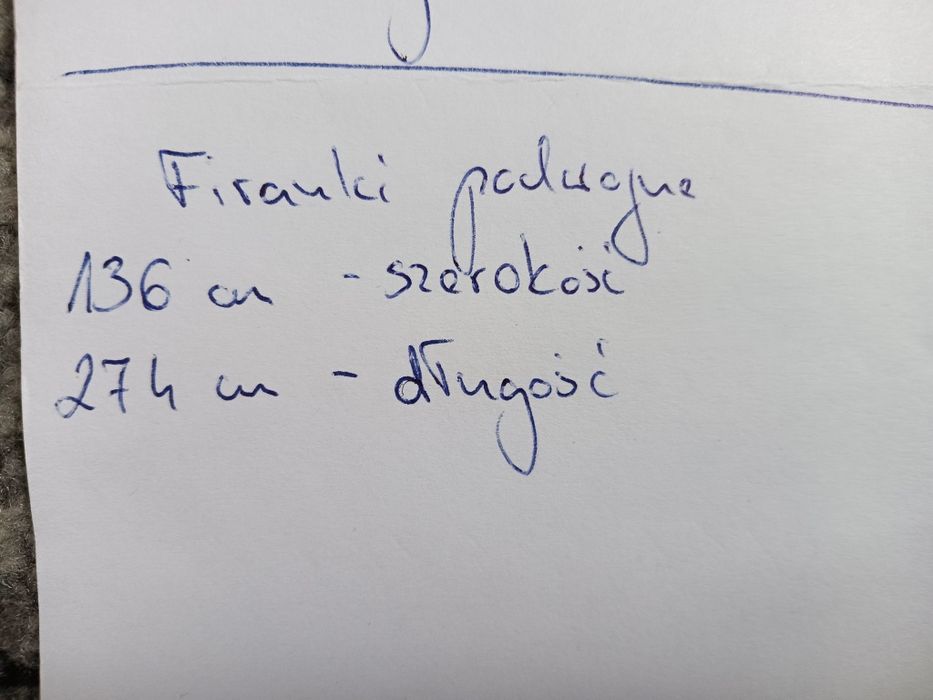 Firanki podwojne
136 cm - szerokość
274 cm - długość